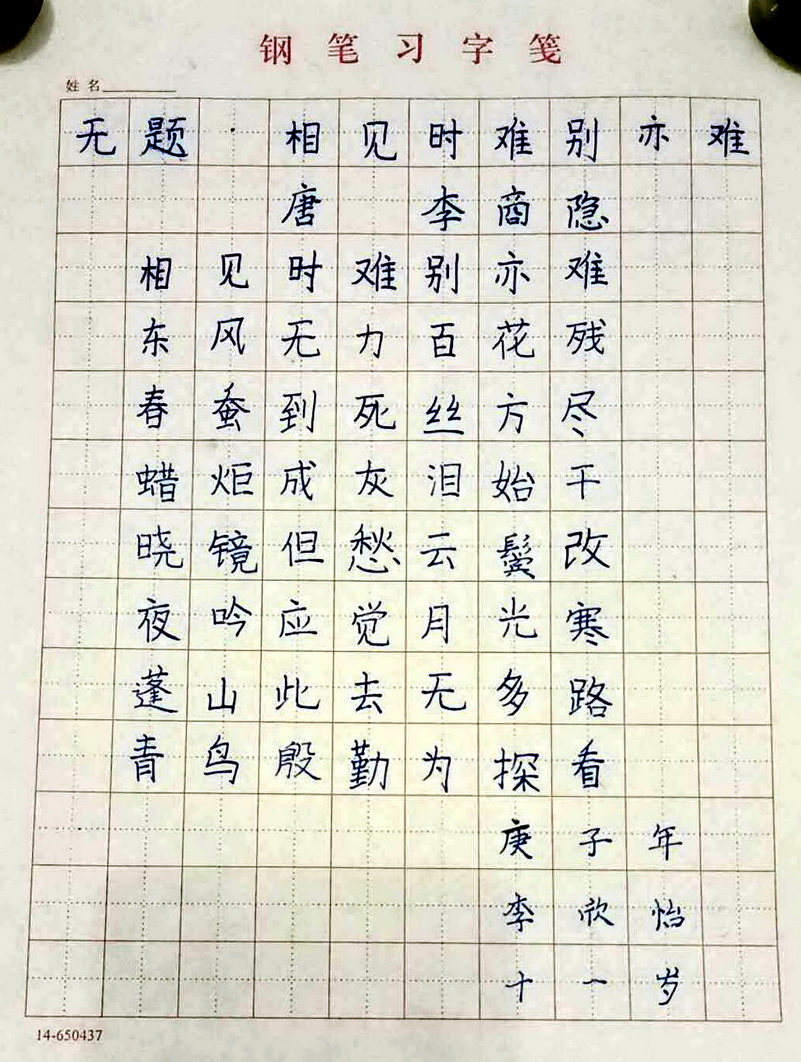 钢笔习字笺
姓名
无题·相见时难别亦难
唐 李商隐
相见时难别亦难
东风无力百花残
春蚕到死丝方尽
蜡炬成灰泪始干
晓镜但愁云鬓改
夜吟应觉月光寒
蓬山此去无多路
青鸟殷勤为探看
庚子年
李欣怡
十一岁
14-650437